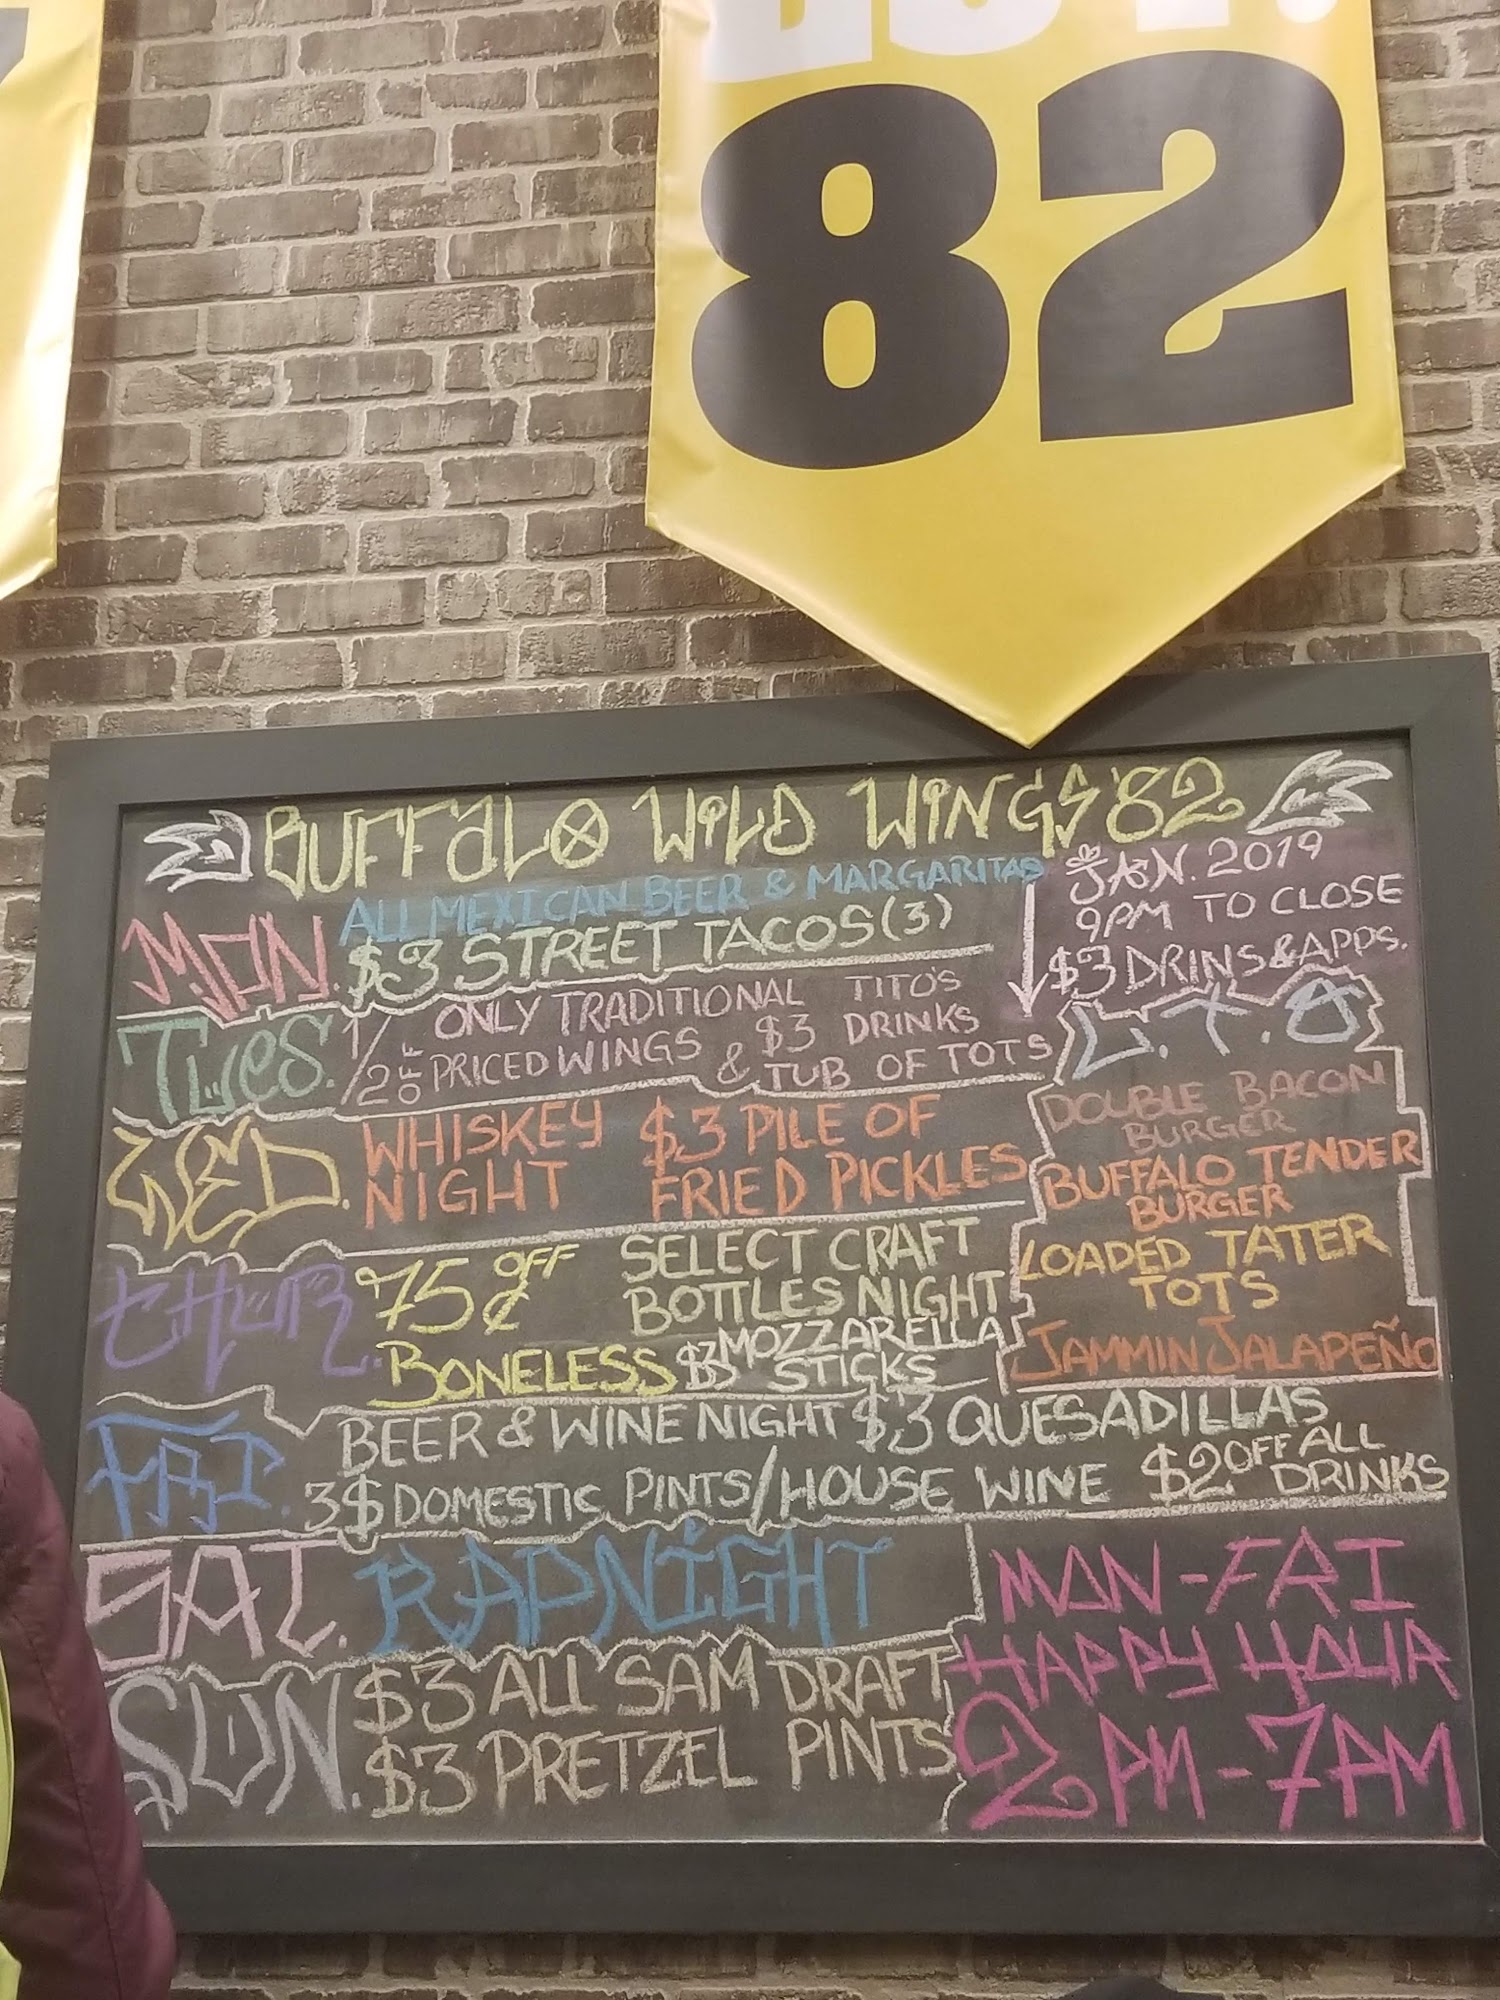 82
BUFFALO WILD WINGS '82
MON. ALL MEXICAN BEER & MARGARITAS
$3 STREET TACOS (3)
JAN. 2019
9PM TO CLOSE
$3 DRINS & APPS.
TUES. 1/2 OFF ONLY TRADITIONAL
PRICED WINGS & $3 TITO'S DRINKS
TUB OF TOTS
L.T.O
DOUBLE BACON
BURGER
BUFFALO TENDER
BURGER
LOADED TATER
TOTS
JAMMIN JALAPEÑO
WED. WHISKEY NIGHT
$3 PILE OF
FRIED PICKLES
THUR. 75¢ OFF
BONELESS
SELECT CRAFT
BOTTLES NIGHT
$3 MOZZARELLA
STICKS
FRI. BEER & WINE NIGHT $3 QUESADILLAS
3$ DOMESTIC PINTS/HOUSE WINE $2 OFF ALL DRINKS
SAT. RAP NIGHT
SUN. $3 ALL SAM DRAFT PINTS
$3 PRETZEL
MON-FRI
HAPPY HOUR
2PM-7PM